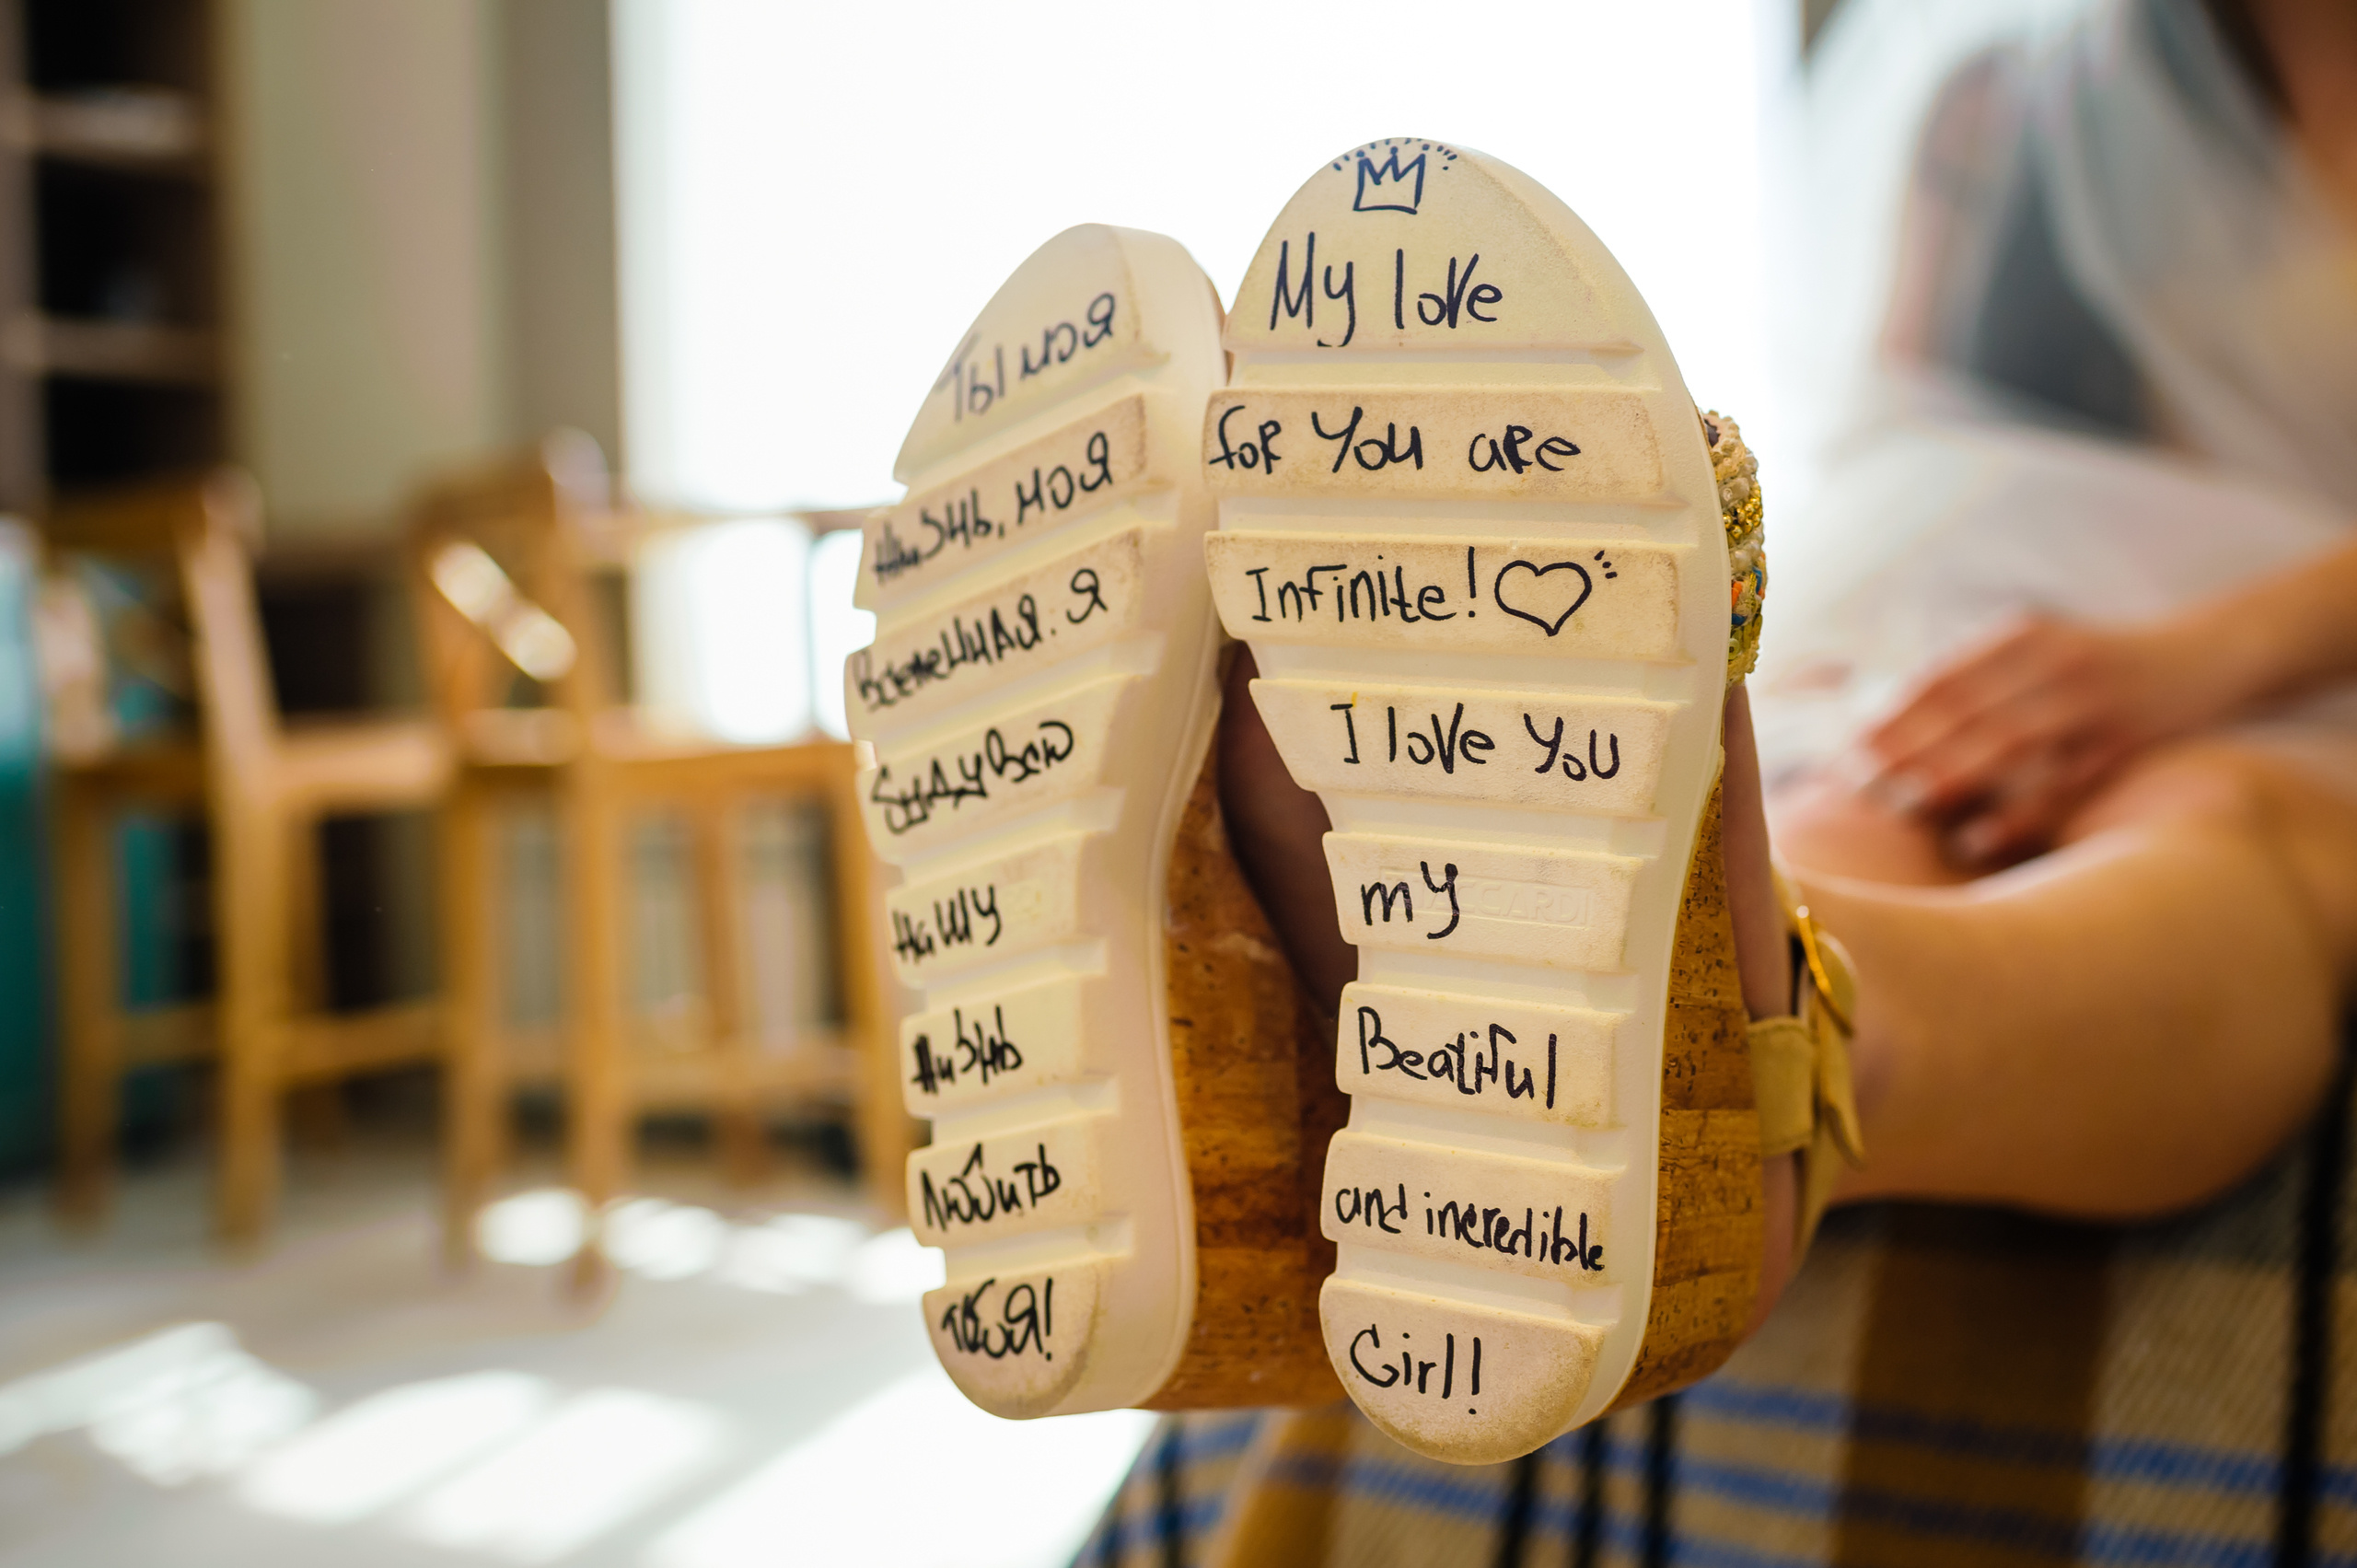 Ты моя
жизнь, моя
Вселенная. Я
Буду всю
нашу
жизнь
Любить
тебя!
My love
for You are
Infinite!
I love You
my
Beatiful
and incredible
Girl!